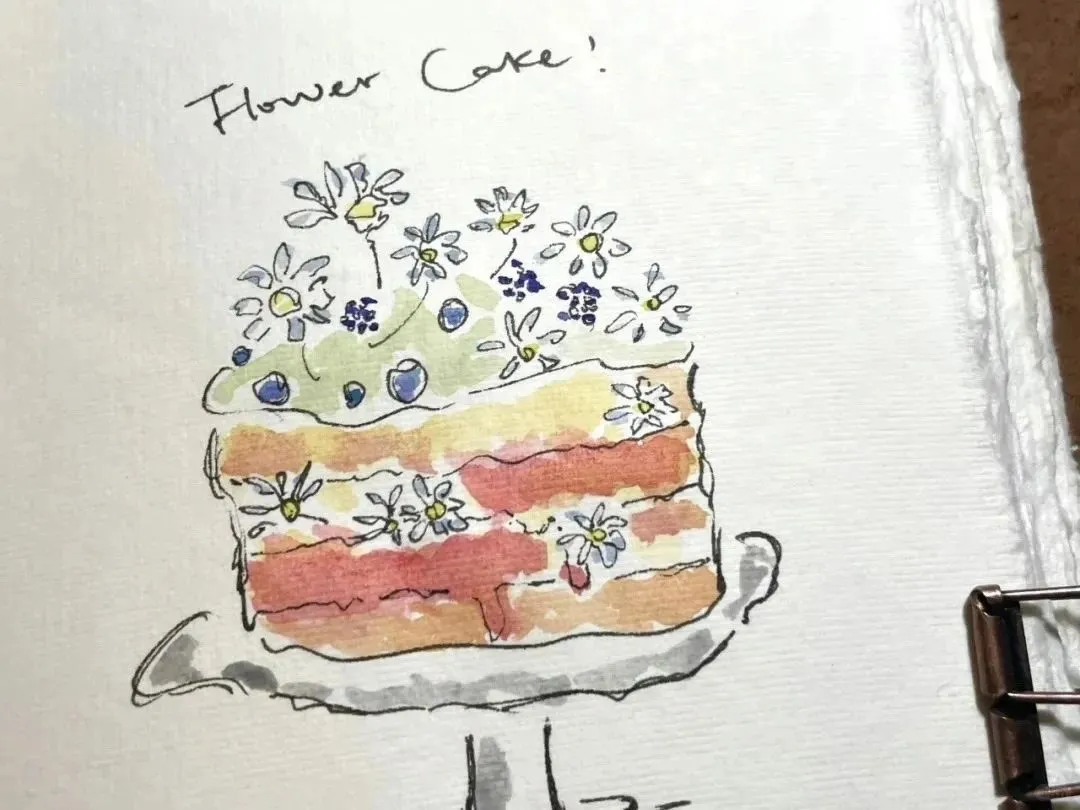 Flower Cake!